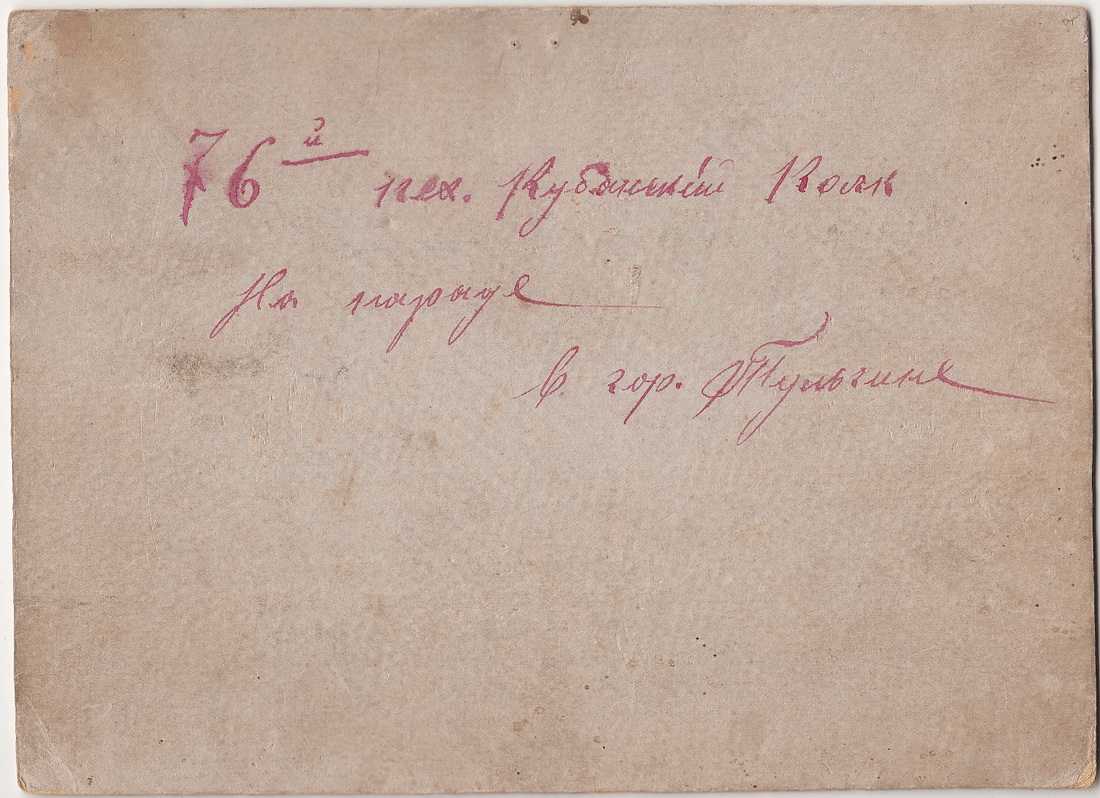 76й пех. Кубанскій Полк
На параде
в гор. Тульчине